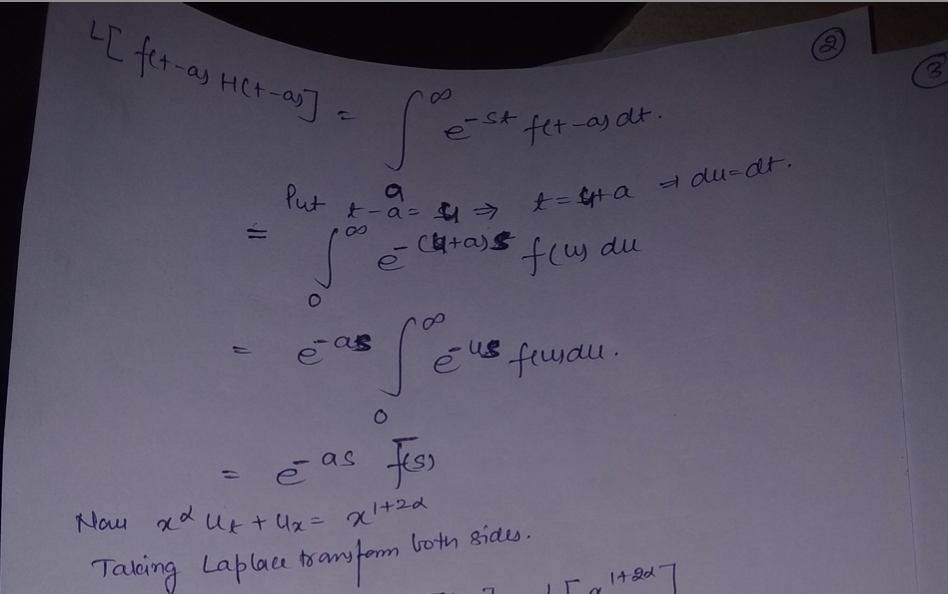 ②
③
L[f(t-a) H(t-a)] = ∫ₐ^∞ e^{-st} f(t-a) dt.
Put t-a = u ⇒ t = u+a ⇒ du = dt.
= ∫₀^∞ e^{-(u+a)s} f(u) du
= e^{-as} ∫₀^∞ e^{-us} f(u) du.
= e^{-as} f̄(s)
Now x^α u_t + u_x = x^{1+2α}
Taking Laplace transform both sides.
[x^{1+2α}]